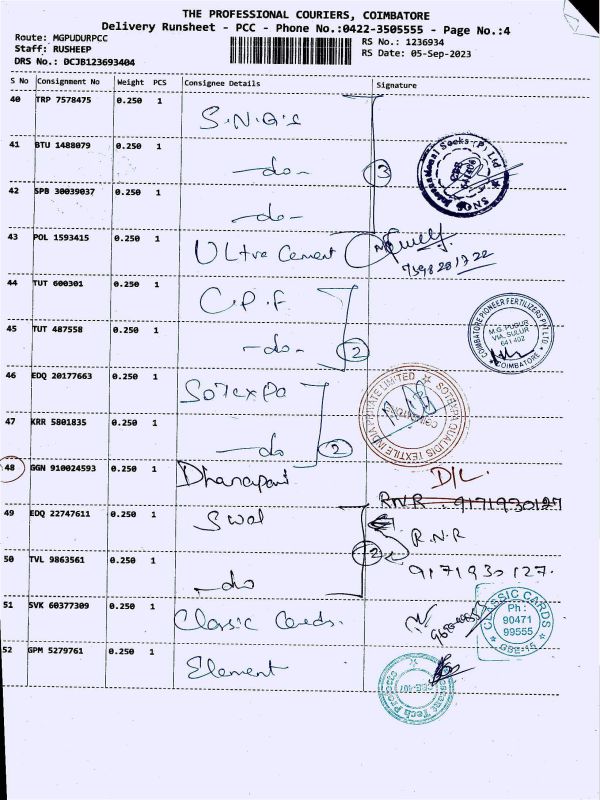 THE PROFESSIONAL COURIERS, COIMBATORE
Delivery Runsheet - PCC - Phone No.:0422-3505555 - Page No.:4
Route: MGPUDURPCC
Staff: RUSHEEP
DRS No.: DCJB123693404
RS No.: 1236934
RS Date: 05-Sep-2023
S No Consignment No Weight PCS Consignee Details Signature
40 TRP 7578475 0.250 1 S.N.Q.S
41 BTU 1488079 0.250 1 -do-
3
SNQS International Socks (P) Ltd
42 SPB 30039037 0.250 1 -do-
43 POL 1593415 0.250 1 Ultra Cement
44 TUT 600301 0.250 1 C.P.F
45 TUT 487558 0.250 1 -do-
2
COIMBATORE PIONEER FERTILIZERS PVT LTD
M.G. PUDUR
VIA. SULUR
641 402
COIMBATORE
46 EDQ 20177663 0.250 1 Sotexpa
47 KRR 5801835 0.250 1 -do
2
SOTEXPA QUALIDIS TEXTILE INDIA PRIVATE LIMITED
48 GGN 910024593 0.250 1 Dhanapani D/L
RNR. 9171930127
49 EDQ 22747611 0.250 1 Swal
R.N.R
2
50 TVL 9863561 0.250 1 -do
9171930127.
51 SVK 60377309 0.250 1 Classic Cards.
CLASSIC CARDS
Ph :
90471
99555
52 GPM 5279761 0.250 1 Element